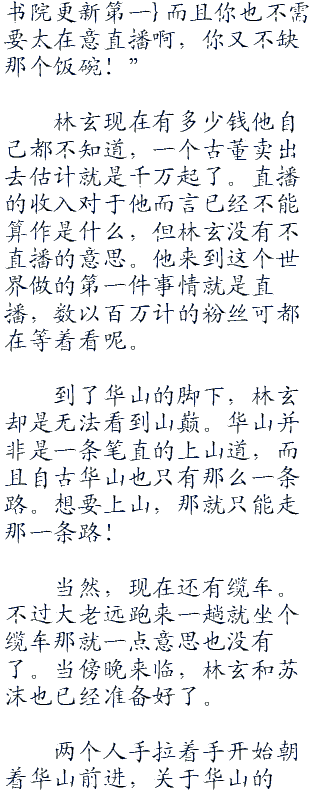 书院更新第一}而且你也不需
要太在意直播啊，你又不缺
那个饭碗！”
林玄现在有多少钱他自
己都不知道，一个古董卖出
去估计就是千万起了。直播
的收入对于他而言已经不能
算作是什么，但林玄没有不
直播的意思。他来到这个世
界做的第一件事情就是直
播，数以百万计的粉丝可都
在等着看呢。
到了华山的脚下，林玄
却是无法看到山巅。华山并
非是一条笔直的上山道，而
且自古华山也只有那么一条
路。想要上山，那就只能走
那一条路！
当然，现在还有缆车。
不过大老远跑来一趟就坐个
缆车那就一点意思也没有
了。当傍晚来临，林玄和苏
沫也已经准备好了。
两个人手拉着手开始朝
着华山前进，关于华山的